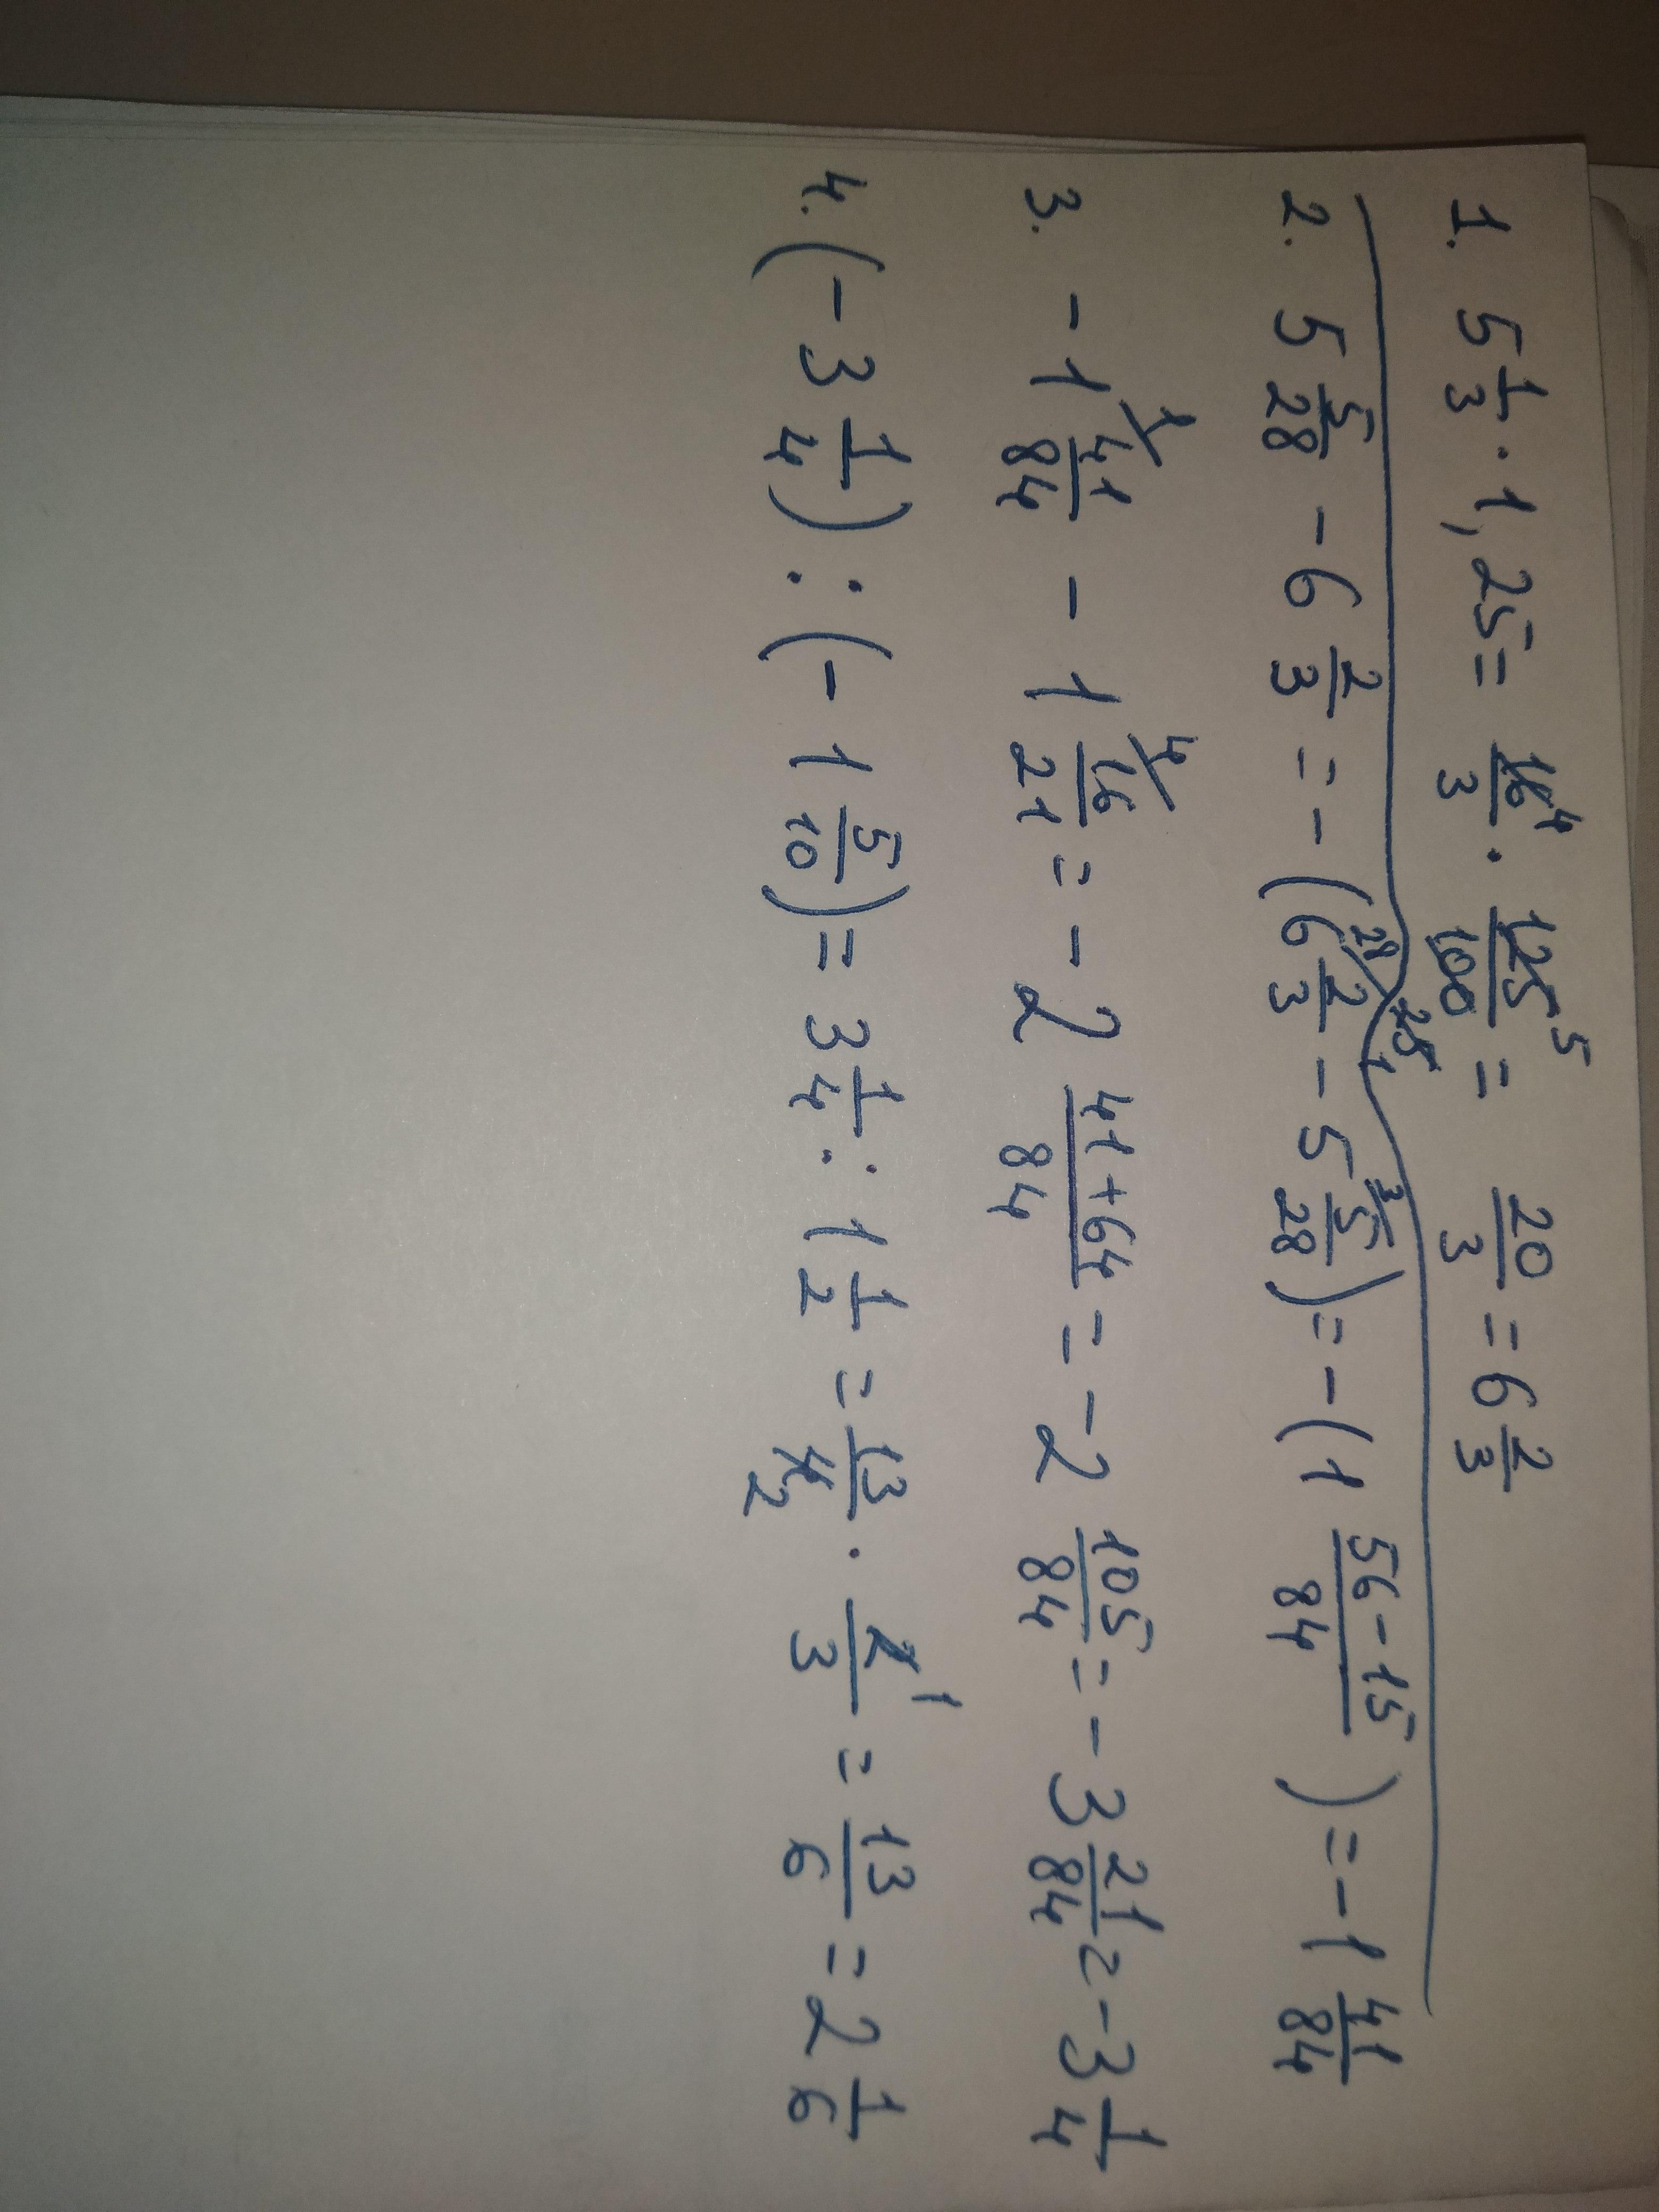 1. 5 1/3 · 1,25 = 16/3 ⁴ · 125/100 ⁵ = 20/3 = 6 2/3
2. 5 5/28 - 6 2/3 = - (6 2/3 ²⁸ - 5 5/28 ³) = - (1 56-15/84) = - 1 41/84
3. - 1 41/84 ¹ - 1 16/21 ⁴ = - 2 41+64/84 = - 2 105/84 = - 3 21/84 = - 3 1/4
4. (- 3 1/4) : (- 1 5/10) = 3 1/4 : 1 1/2 = 13/4 ₂ · 2/3 ¹ = 13/6 = 2 1/6